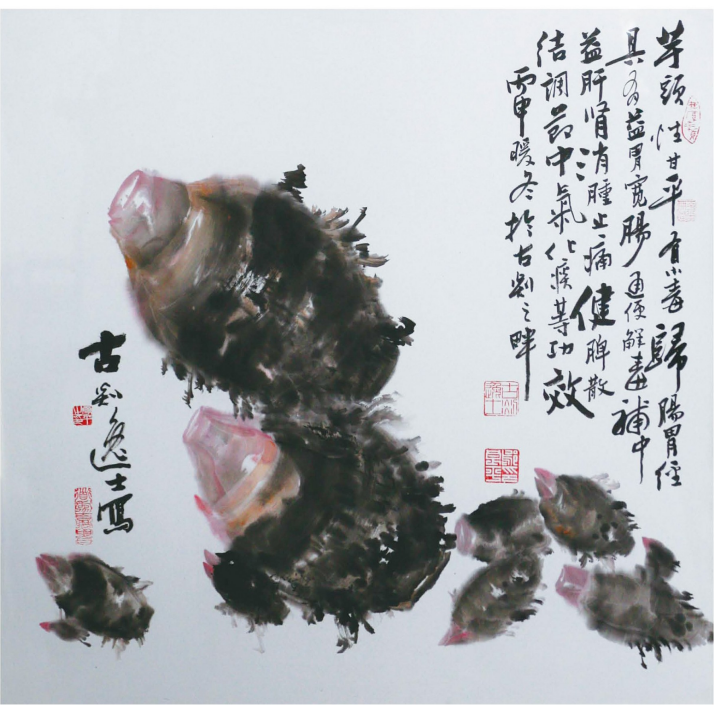 芋頭性甘平有小毒歸腸胃經
具有益胃寬腸通便解毒補中
益肝腎消腫止痛健脾散
结調節中氣化痰等功效
丙申暖冬於古剡之畔
古剡逸士寫